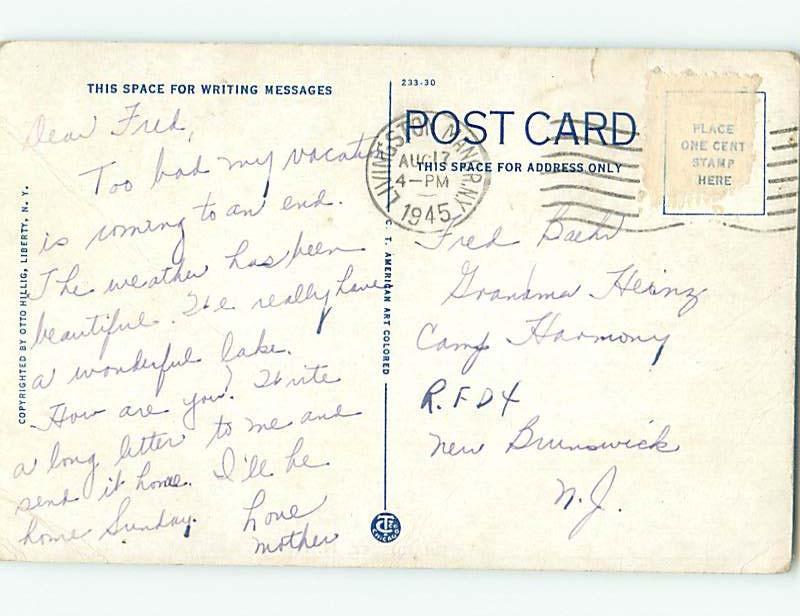 THIS SPACE FOR WRITING MESSAGES
Dear Fred,
Too bad my vacation
is coming to an end.
The weather has been
beautiful. We really have
a wonderful lake.
How are you? Write
a long letter to me and
send it home. I'll be
home Sunday.
Love
mother
COPYRIGHTED BY OTTO HILLIG, LIBERTY, N. Y.
C. T. AMERICAN ART COLORED
C.T. CHICAGO
233-30
POST CARD
THIS SPACE FOR ADDRESS ONLY
LIVINGSTON MANOR, N.Y.
AUG 17
4-PM
1945
PLACE
ONE CENT
STAMP
HERE
Fred
Grandma Heinz
Camp Harmony
R.F.D 4
New Brunswick
N.J.